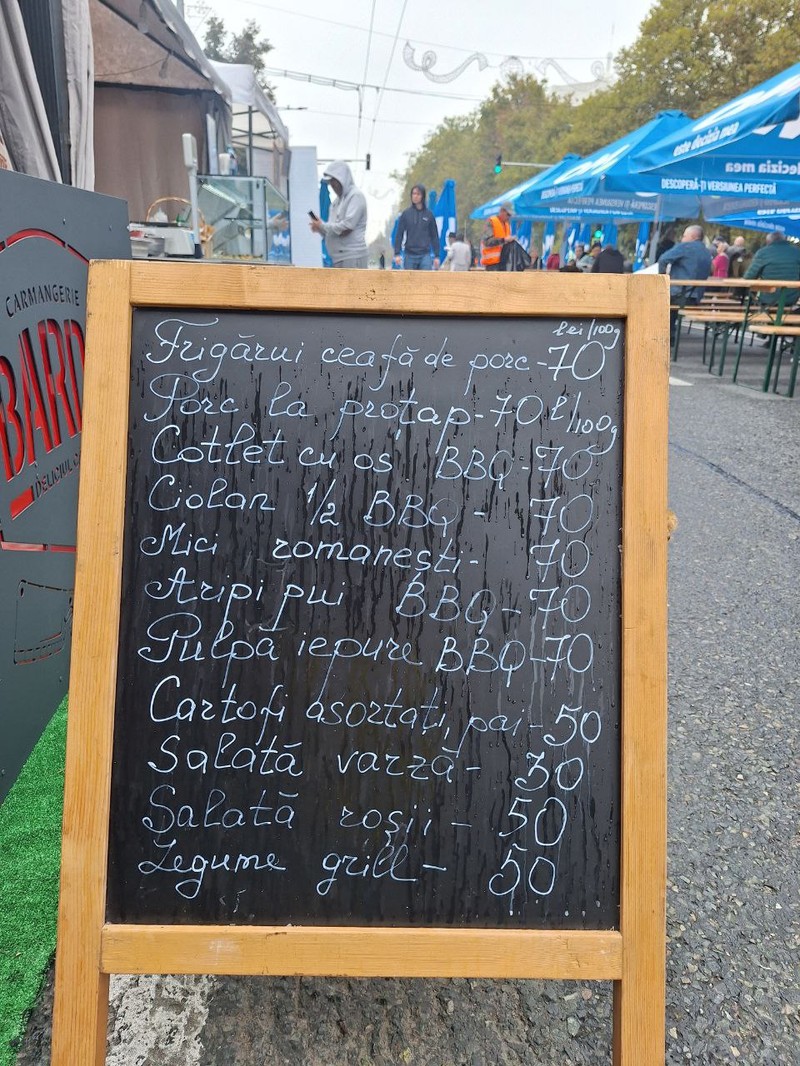 este decizia mea
decizia mea
DESCOPERĂ-ȚI VERSIUNEA PERFECTĂ
CARMANGERIE
BARD
DELICIUL
lei/100g
Frigărui ceafă de porc-70
Porc la proțap-70 l/100g
Cotlet cu os BBQ-70
Ciolan 1/2 BBQ - 70
Mici romanești- 70
Aripi pui BBQ-70
Pulpă iepure BBQ-70
Cartofi asortați, pai-50
Salată varză- 30
Salată roșii - 50
Legume grill- 50